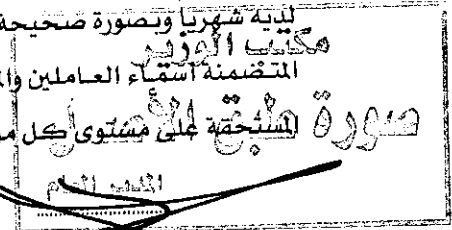 لديه شهرياً وبصورة صحيحة
مكتب الوزير
المتضمنة أسماء العاملين
صورة طبق الأصل
المستحقة على مستوى كل
المدير العام